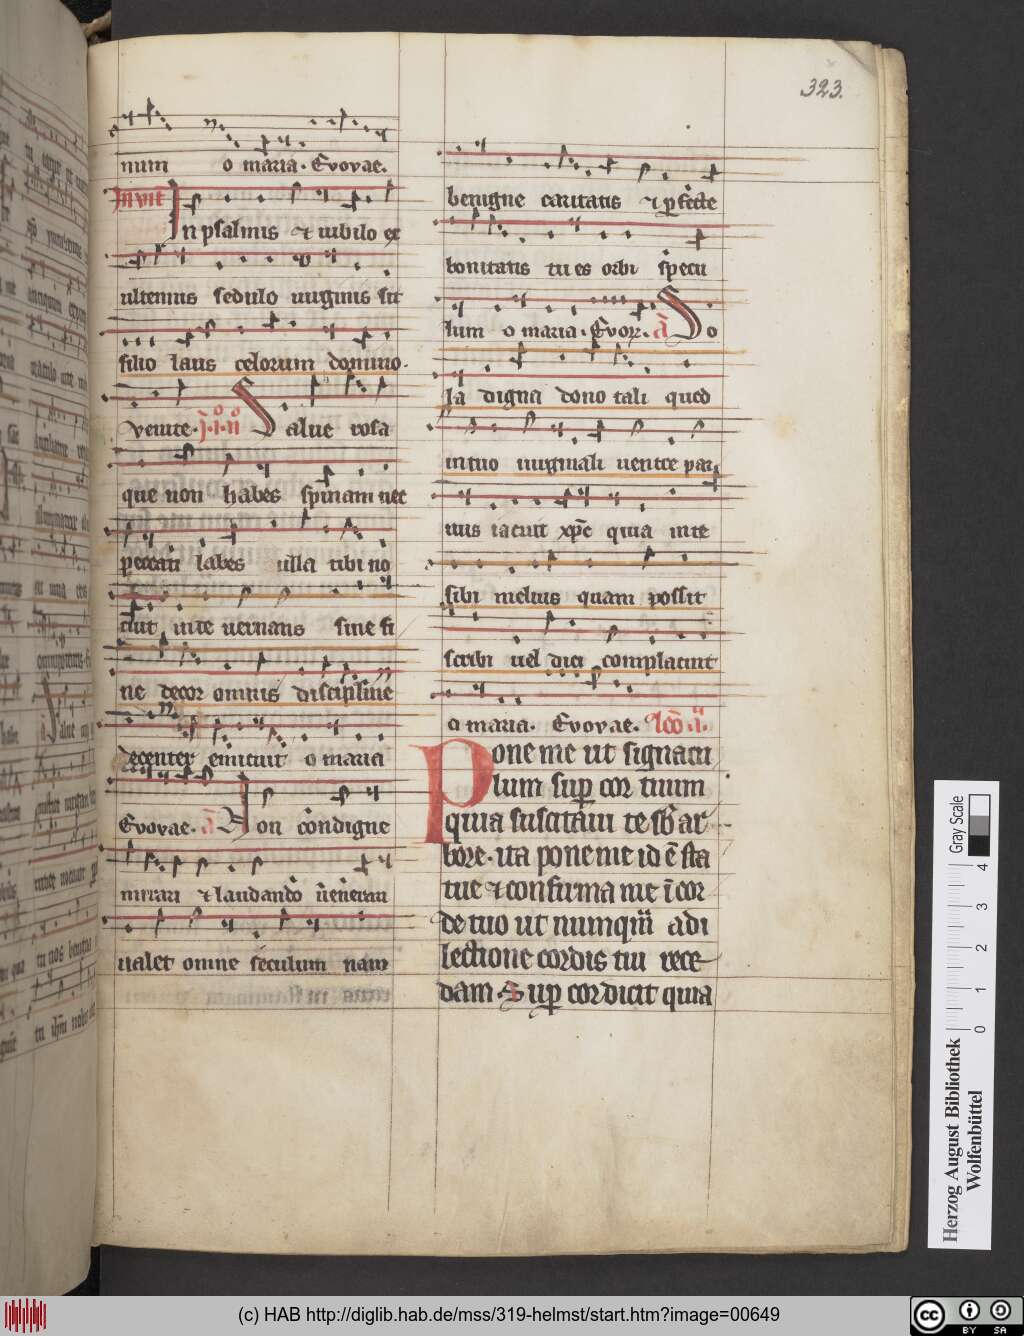 323.
num o maria. Evovae.
Invit In psalmis et iubilo ex
ultemus sedulo uirginis sit
filio laus celorum domino.
Venite. Salue rosa
que non habes spinam nec
peccati labes ulla tibi no
cuit in te uernans sine fi
ne decor omnis discipline
decenter emicuit o maria
Evovae. a Non condigne
mirari et laudando uenerari
ualet omne seculum nam
benigne caritatis et perfecte
bonitatis tu es orbi specu
lum o maria. Evovae. a So
la digna dono tali quod
in tuo uirginali uentre par
uus iacuit xpc quia in te
sibi melius quam possit
scribi uel dici complacuit
o maria. Evovae.
Pone me ut signacu
lum sup cor tuum
quia suscitaui te sb ar
bore. ita pone me id e sta
tue et confirma me i cor
de tuo ut numqm a di
lectione cordis tui rece
dam. Sup cor dicit quia
Gray Scale
0 1 2 3 4
Herzog August Bibliothek
Wolfenbüttel
(c) HAB http://diglib.hab.de/mss/319-helmst/start.htm?image=00649
cc BY SA